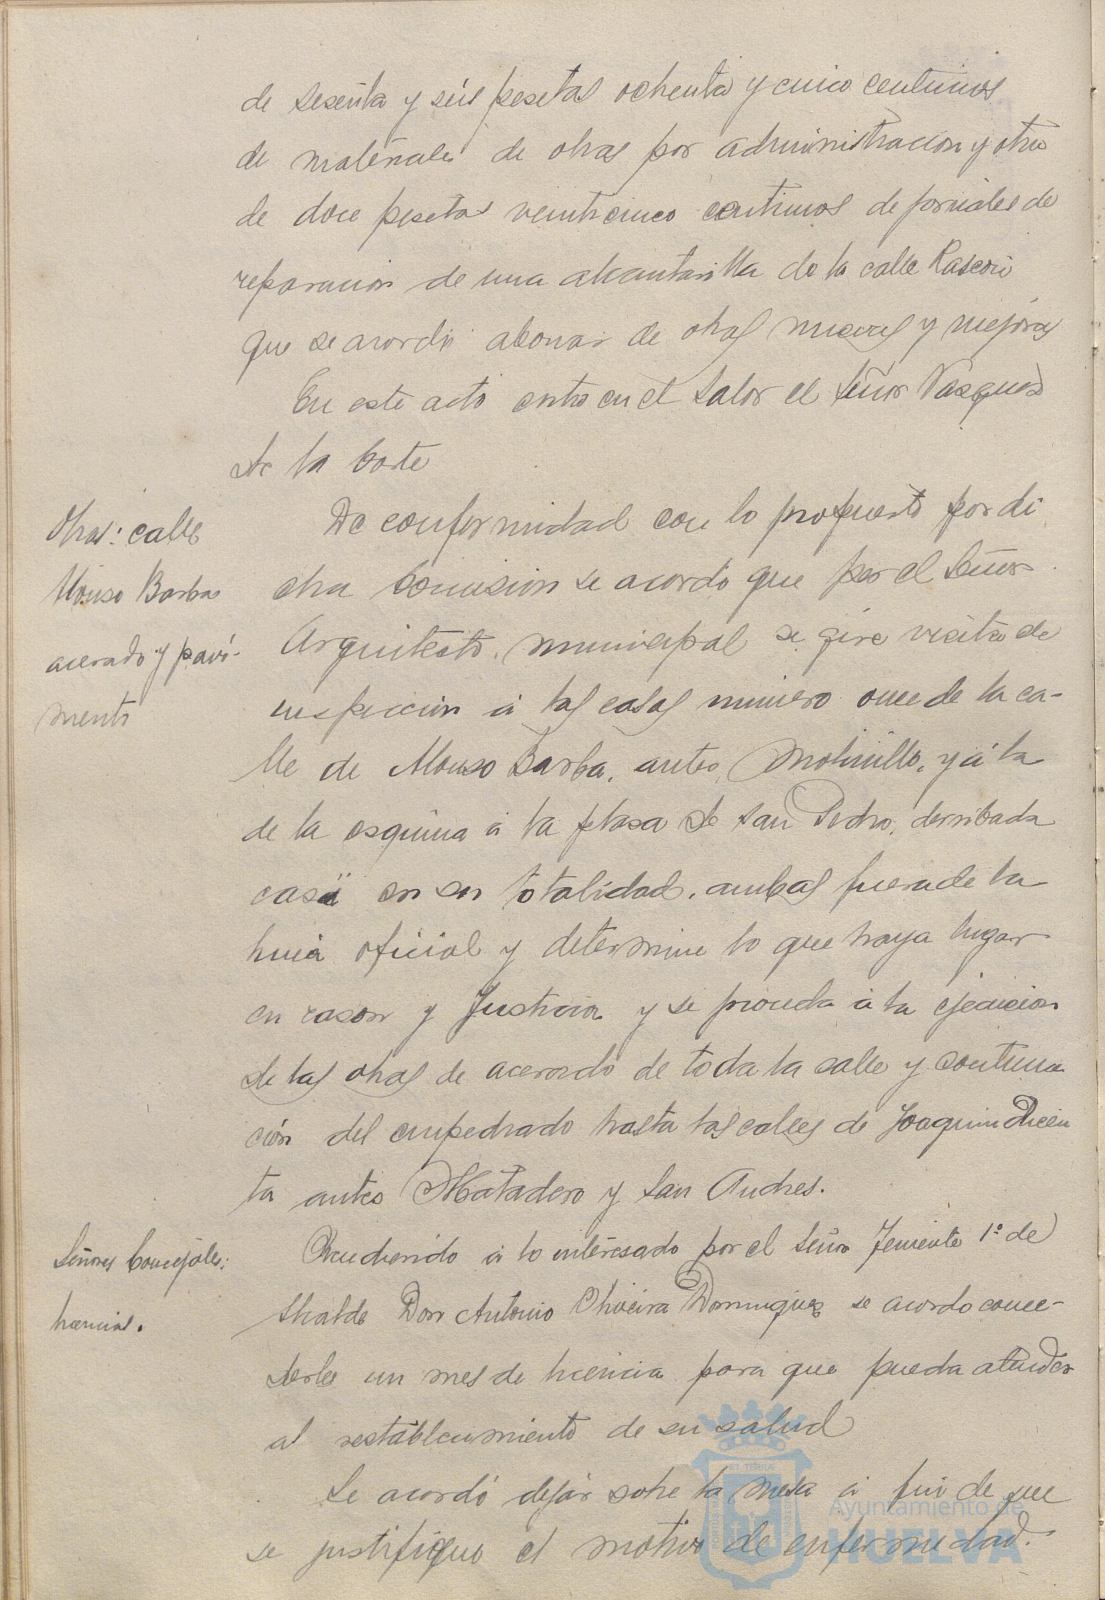 de sesenta y seis pesetas ochenta y cinco centimos
de materiales de obras por administracion y otra
de doce pesetas veinticinco centimos de jornales de
reparacion de una alcantarilla de la calle Rascon
que se acordó abonar de obras nuevas y mejoras
En este acto entro en el Salon el Señor Vazquez
de la Corte
Obras: calle
Alonso Barba
acerado y pavi-
mento
De conformidad con lo propuesto por di
cha Comision se acordó que por el Señor
Arquitecto municipal se gire visita de
inspeccion á las casas numero once de la ca-
lle de Alonso Barba, antes Molinillo, y á la
de la esquina á la plaza de San Pedro, derribada
casi en su totalidad, ambas fuera de la
linea oficial y determine lo que haya lugar
en razon y Justicia y se proceda á la ejecucion
de las obras de acerado de toda la calle y continua
ción del empedrado hasta las calles de Joaquin Dicen
ta antes Matadero y San Andres.
Señores Concejales:
licencias.
Accediendo á lo interesado por el Señor Teniente 1º de
Alcalde Don Antonio Oliveira Dominguez se acordo conce-
derle un mes de licencia para que pueda atender
al restablecimiento de su salud
Se acordó dejar sobre la mesa á fin de que
se justifique el motivo de enfermedad.
Ayuntamiento de
HUELVA